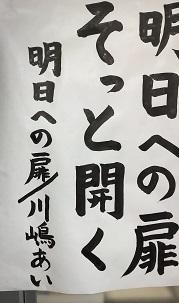 明日への扉
そっと開く
明日への扉/川嶋あい